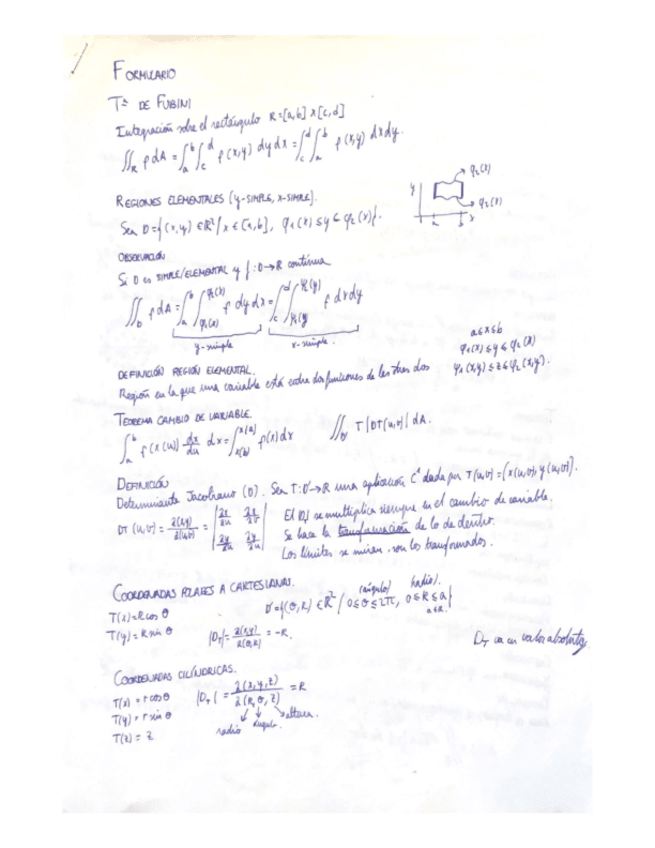 FORMULARIO
Tª DE FUBINI
Integración sobre el rectángulo R=[a,b]x[c,d]
∬_R f dA = ∫_a^b ∫_c^d f(x,y) dy dx = ∫_c^d ∫_a^b f(x,y) dx dy.
φ₂(x)
REGIONES ELEMENTALES (y-SIMPLE, x-SIMPLE).
y
φ₂(x)
Sea D={(x,y) ∈ℝ²/ x ∈ [a,b], φ₁(x) ≤ y ≤ φ₂(x)}.
a b x
OBSERVACIÓN
Si D es SIMPLE/ELEMENTAL y f: D→R continua
∬_D f dA = ∫_a^b ∫_{φ₁(x)}^{φ₂(x)} f dy dx = ∫_c^d ∫_{ψ₁(y)}^{ψ₂(y)} f dx dy
y-simple x-simple.
a≤x≤b
φ₁(x) ≤ y ≤ φ₂(x)
φ₁(x,y) ≤ z ≤ φ₂(x,y).
DEFINICIÓN REGIÓN ELEMENTAL.
Región en la que una variable está entre dos funciones de las otras dos
TEOREMA CAMBIO DE VARIABLE.
∫_a^b f(x(u)) dx/du dx = ∫_{x(b)}^{x(a)} f(x) dx ∬_{D'} T |DT(u,v)| dA.
DEFINICIÓN
Determinante Jacobiano (D). Sea T: D'→R una aplicación C¹ dada por T(u,v) = (x(u,v), y(u,v)).
DT (u,v) = ∂(x,y)/∂(u,v) = |∂x/∂u ∂x/∂v ; ∂y/∂u ∂y/∂u|
El |D| se multiplica siempre en el cambio de variable.
Se hace la transformación de lo de dentro.
Los límites se miran, son los transformados.
COORDENADAS POLARES A CARTESIANAS.
T(x)=R cos θ
T(y)= R sin θ
|D_T| = ∂(x,y)/∂(θ,R) = -R.
D'={(θ,R) ∈ ℝ² / 0≤θ≤2π, 0≤R≤a}
(ángulo) (radio).
D_T va en valor absoluto.
COORDENADAS CILÍNDRICAS.
T(x) = r cos θ
T(y) = r sin θ
T(z) = z
|D_T| = ∂(x,y,z)/∂(R,θ,z) = R
radio ángulo altura.